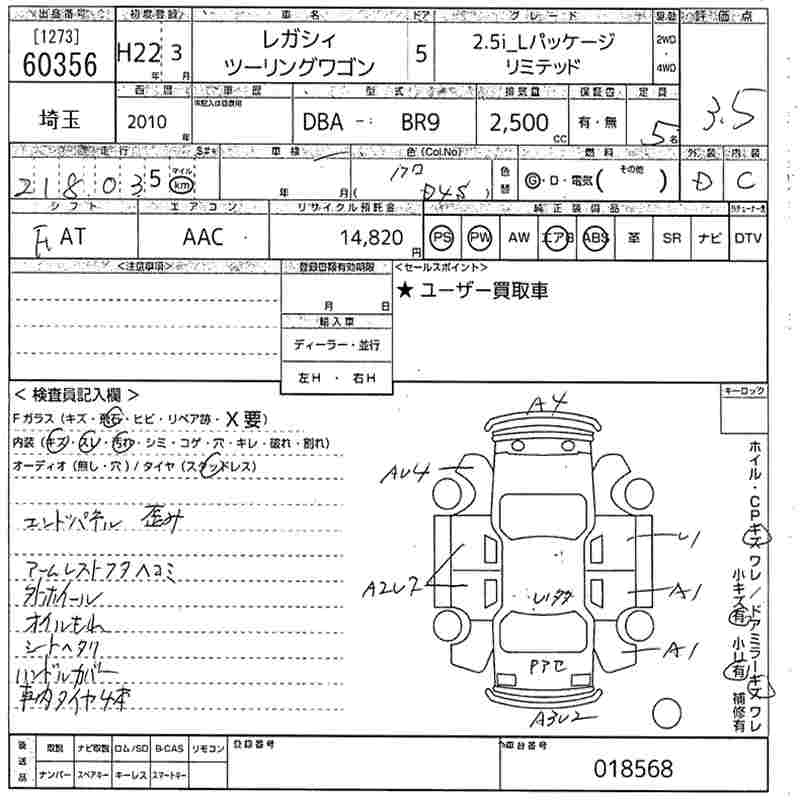 出品番号 初度登録 車名 ドア グレード 駆動 評価点
[1273] 60356 H22 年 3 月 レガシィ ツーリングワゴン 5 2.5i_Lパッケージ リミテッド 2WD ・ 4WD 3.5
西暦 車歴 型式 排気量 保証書 定員
埼玉 2010 年 DBA - BR9 2,500 CC 有・無 5名
走行 車検 色(Col.No) 燃料 外装 内装
218035 マイル km 年 月 ( D4S ) 色替 G・D・電気( その他 ) D C
シフト エアコン リサイクル預託金 純正装備品
AT AAC 14,820 円 PS PW AW エアB ABS 革 SR ナビ DTV
<注意事項> 登録書類有効期限 <セールスポイント>
月 日 ★ ユーザー買取車
輸入車
ディーラー・並行
左H ・ 右H
< 検査員記入欄 > キーロック
Fガラス (キズ・飛石・ヒビ・リペア跡・X要)
内装 (キズ・スレ・汚れ・シミ・コゲ・穴・キレ・破れ・割れ)
オーディオ (無し・穴) / タイヤ (スタッドレス)
エンドパネル 歪み
アームレストフタヘコミ
外ホイール
オイルもれ
シートヘタリ
ハンドルカバー
車内タイヤ4本
A4
AU4
U1
A2U2
A1
A1
Pアセ
A3U2
ホイル・CPキズワレ/ドアミラーキズワレ
小キズ有 小凹有 補修有
後送品 取説 ナビ取説 ロム/SD B-CAS リモコン 登録番号 車台番号
ナンバー スペアキー キーレス スマートキー 018568